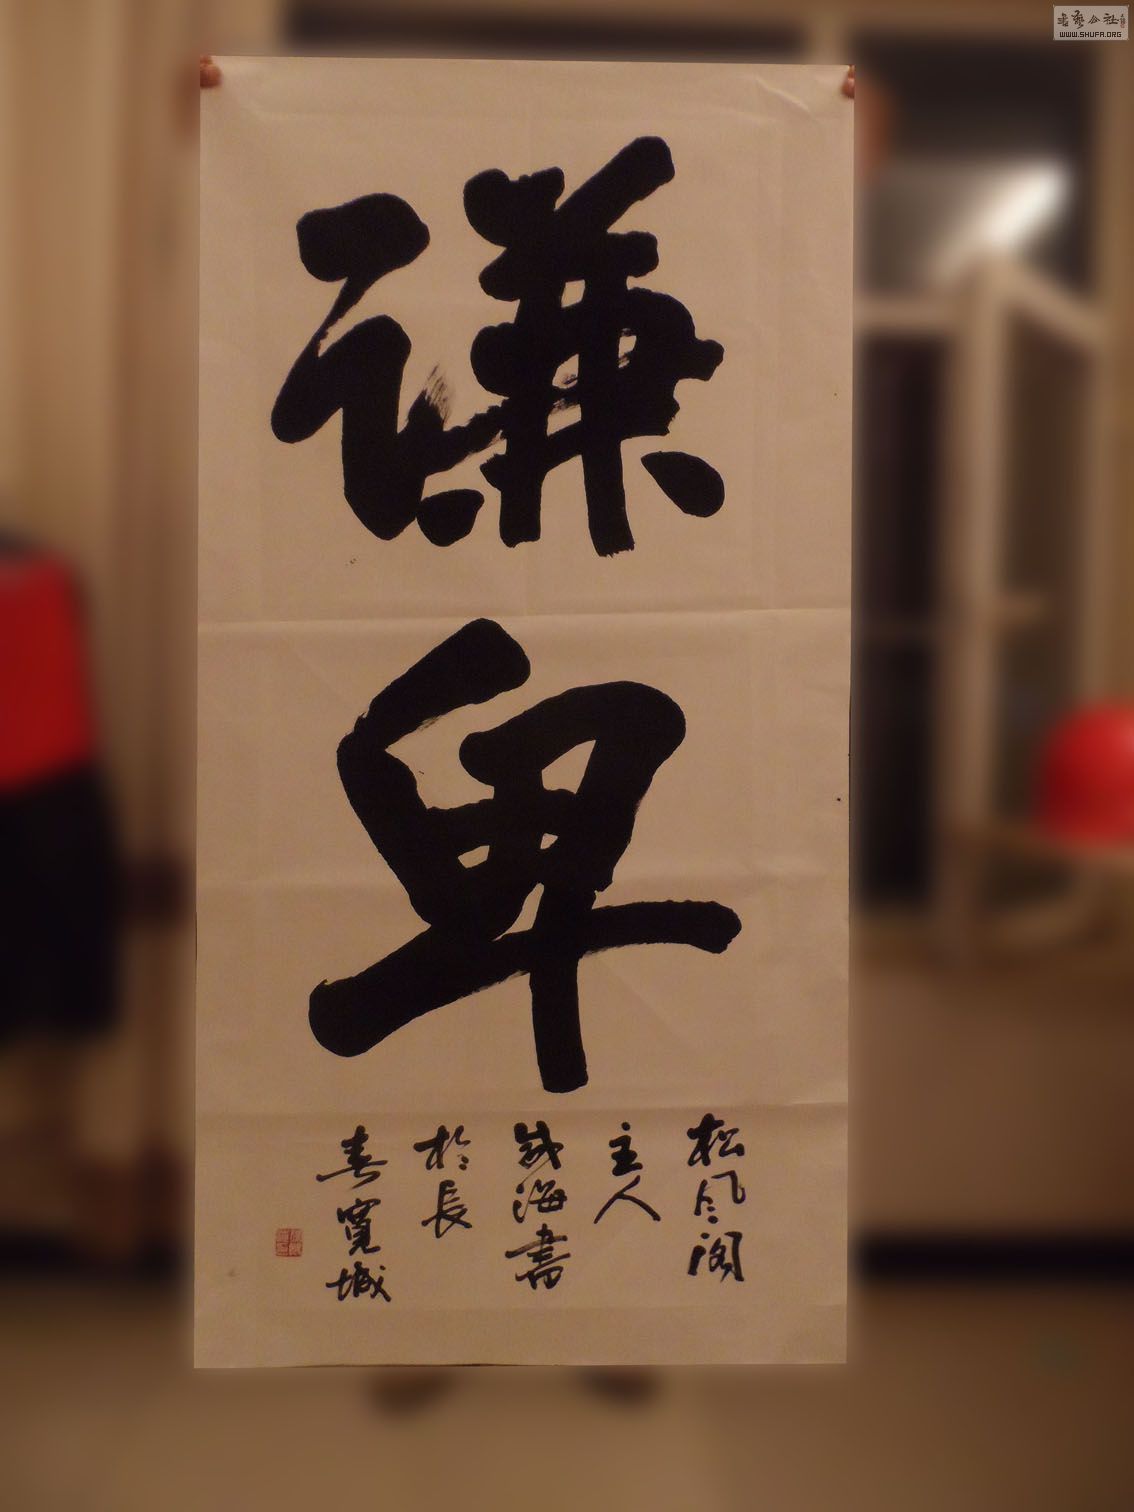 謙
卑
松风阁
主人
成海書
於長
春寬城
书艺公社
WWW.SHUFA.ORG